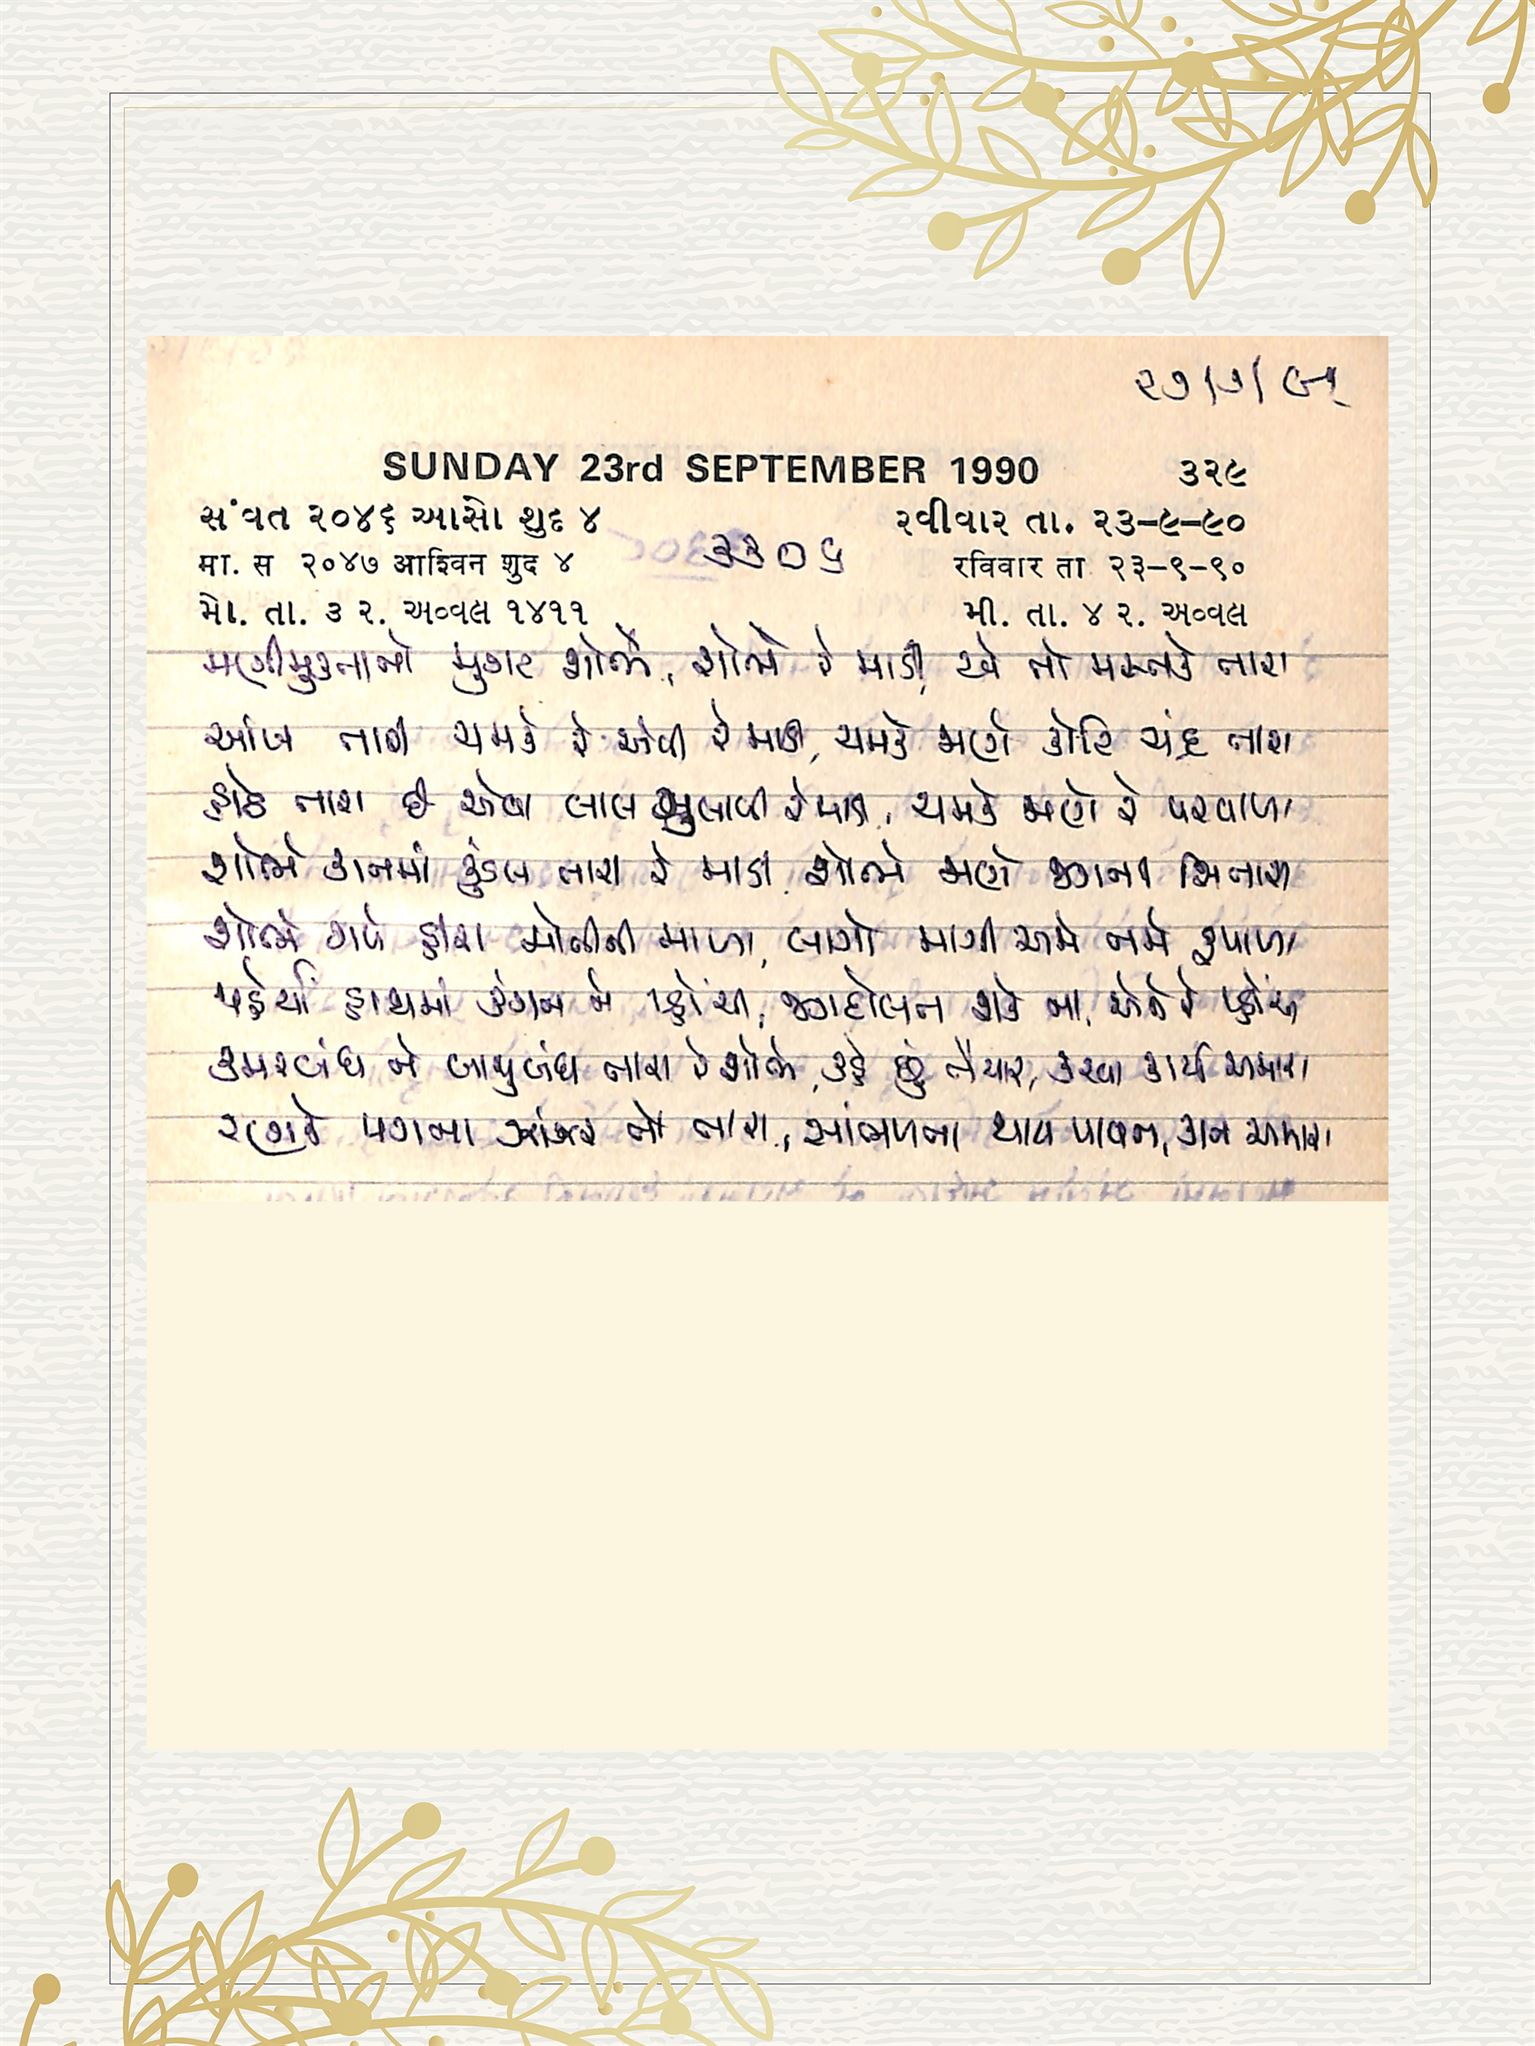 ૨૭/૭/૯૧
SUNDAY 23rd SEPTEMBER 1990 ૩૨૯
સંવત ૨૦૪૬ આસો શુદ ૪ રવીવાર તા. ૨૩-૯-૯૦
मा. स २०४७ आश्विन शुद ४ ૩૩૦૬ रविवार ता २३-९-९०
મો. તા. ૩ ર. અવ્વલ ૧૪૧૧ મી. તા. ૪ ર. અવ્વલ
મણીમુક્તાનો મુગટ શોભે, શોભે રે માડી, એ તો મસ્તકે તારા
આંખ તારી ચમકે રે એવી રે માડી, ચમકે જાણે કોટિ ચંદ્ર તારા
હોઠ તારા છે એવા લાલ ગુલાબી રે માડી, ચમકે જાણે રે પરવાળા
શોભે કાનમાં કુંડલ તારા રે માડી શોભે જાણે જગના મિનારા
શોભે ગળે હીરા મોતીની માળા, લાગો માડી અમે તમે કૃપાળા
પહેર્યાં હાથમાં કંગન ને પહોંચી, જગદોલન શકે ના, એને રે પહોંચી
કમરબંધ ને બાજુબંધ તારા રે શોભે, કહે છું તૈયાર, કરવા કાર્ય અમારા
રણકે પગના ઝાંઝર તો તારા, સાંભળતા થાય પાવન, કાન અમારા